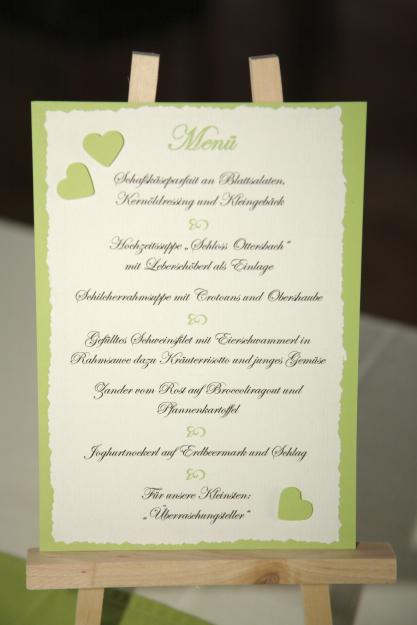 Menü
Schafskäseparfait an Blattsalaten,
Kernöldressing und Kleingebäck
Hochzeitssuppe „Schloss Ottersbach“
mit Leberschöberl als Einlage
Schilcherrahmsuppe mit Crotouns und Obershaube
Gefülltes Schweinsfilet mit Eierschwammerl in
Rahmsauce dazu Kräuterrisotto und junges Gemüse
Zander vom Rost auf Broccoliragout und
Pfannenkartoffel
Joghurtnockerl auf Erdbeermark und Schlag
Für unsere Kleinsten:
„Überraschungsteller“